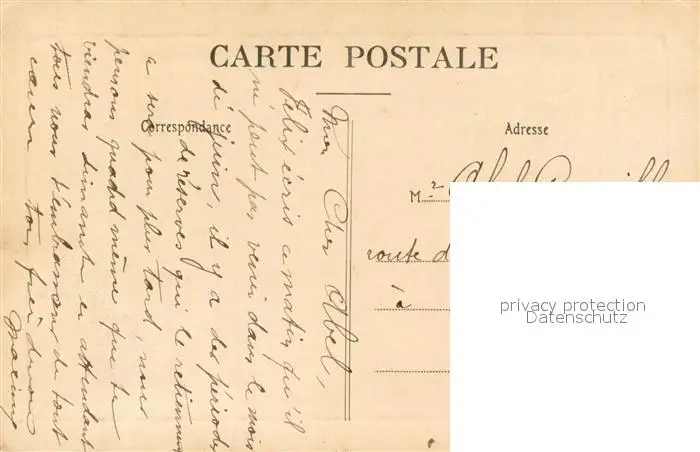 CARTE POSTALE
Correspondance
Adresse
Mon Cher Abel,
Félix écris ce matin qu'il
ne peut pas venir dans le mois
de juin, il y a des périodes
de réserves qui le retiennent
ce sera pour plus tard, nous
pensons quand même que tu
viendras dimanche en attendant
tous nous t'embrassons de tout
cœur ton frère
Maxime
M.
Abel
route d
à
privacy protection
Datenschutz